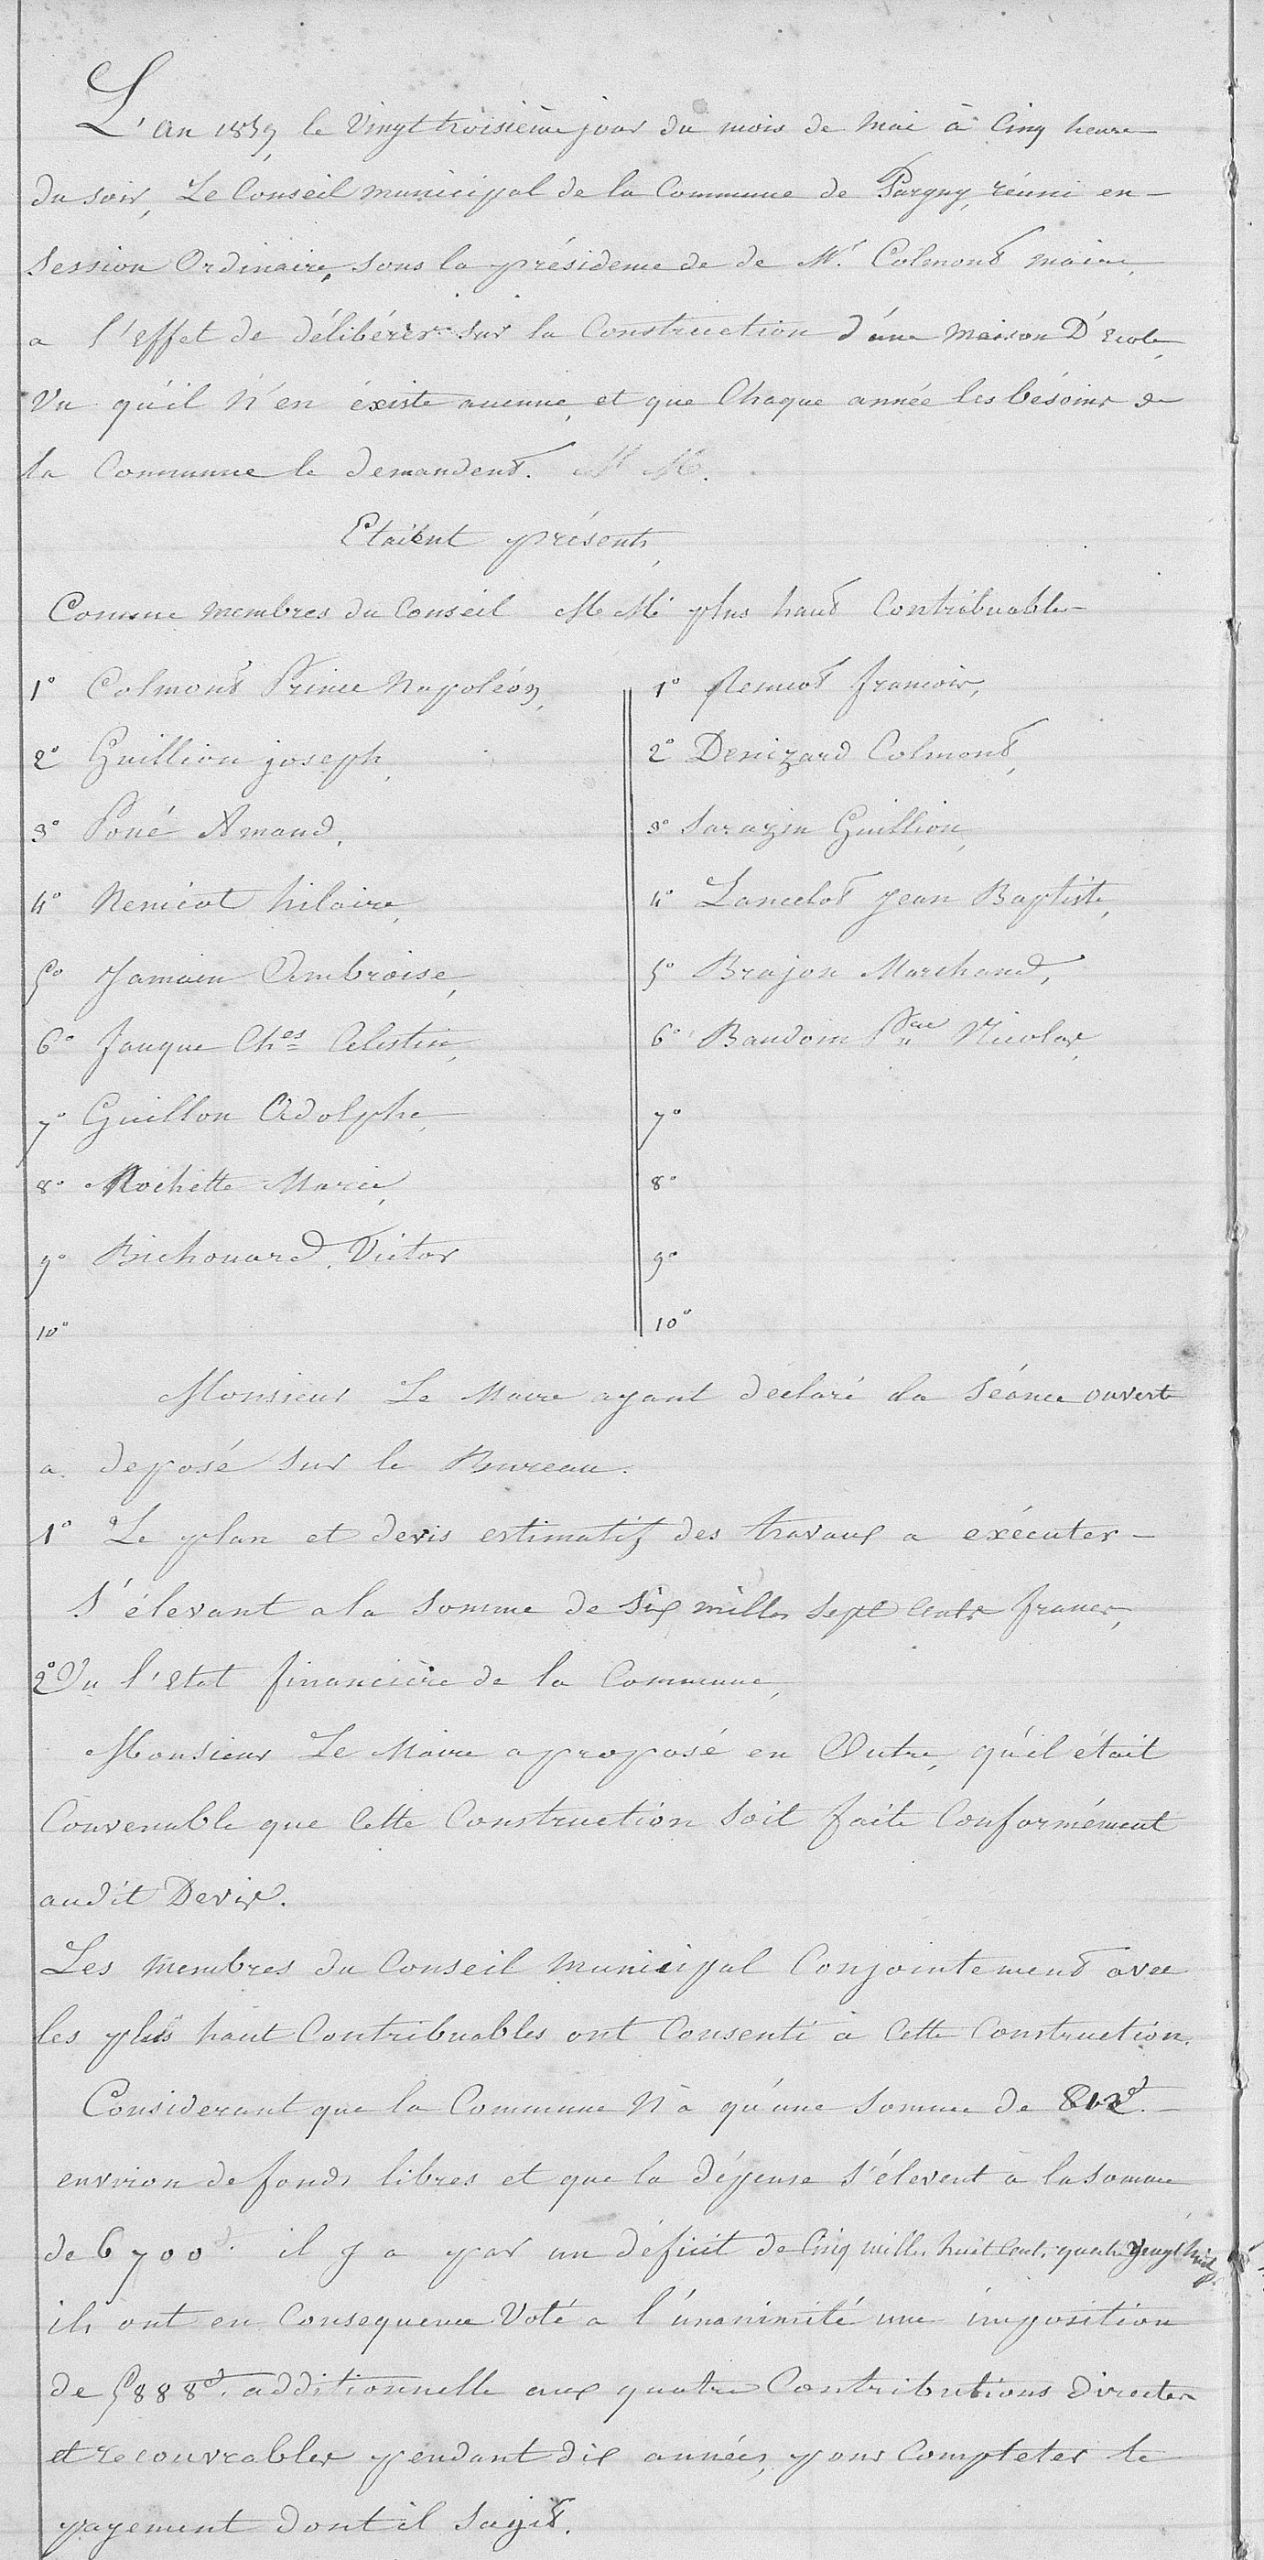 L'an 1859, le Vingt troisième jour du mois de Mai à Cinq heure
du soir, Le Conseil municipal de la Commune de Pargny, réuni en
Session Ordinaire, sous la présidence de de Mr. Colmont maire,
a l'effet de délibérer sur la Construction d'une Maison D'Ecole,
Vu qu'il N'en éxiste aucune, et que Chaque année les bésoins de
la Commune le demandent.
Etaient présents,
Comme membres du Conseil MM plus haut Contribuables
1° Colmont Prince Napoléon, 1° Remiot francois,
2° Guillion joseph, 2° Denizard Colmont,
3° Poné Amand, 3° Sarazin Guillion,
4° Remiot hilaire, 4° Lancelot jean Baptiste,
5° Jamain Ambroise, 5° Brajon Marchand,
6° Jauque Ches Celestin, 6° Baudoin Nicolas,
7° Guillon Adolphe, 7°
8° Rochette Marie, 8°
9° Brichouard Victor 9°
10° 10°
Monsieur Le Maire ayant declaré la Séance ouverte
a deposé sur le Bureau.
1° Le plan et devis estimatif des travaux a exécuter
S'élevant a la somme de Six milles sept Cents francs,
2° Vu l'Etat financière de la Commune,
Monsieur Le Maire a proposé en Outre, qu'il était
Convenable que Cette Construction soit faite Conformément
audit Devis.
Les Membres du Conseil Municipal Conjointement avec
les plus haut Contribuables ont Consenti à Cette Construction.
Considerant que la Commune N'a qu'une Somme de 812f.
environ de fonds libres et que la dépense S'élevent à la Somme
de 6700f. il y a par un déficit de Cinq milles huit Cents quatre Vingt huit f.
ils ont en Consequence Voté a l'únanimité une imposition
de 5888f. additionnelle aux quatre Contributions Directes
et recouvrables pendant dix années, pour Completer le
payement dont il Sagit.